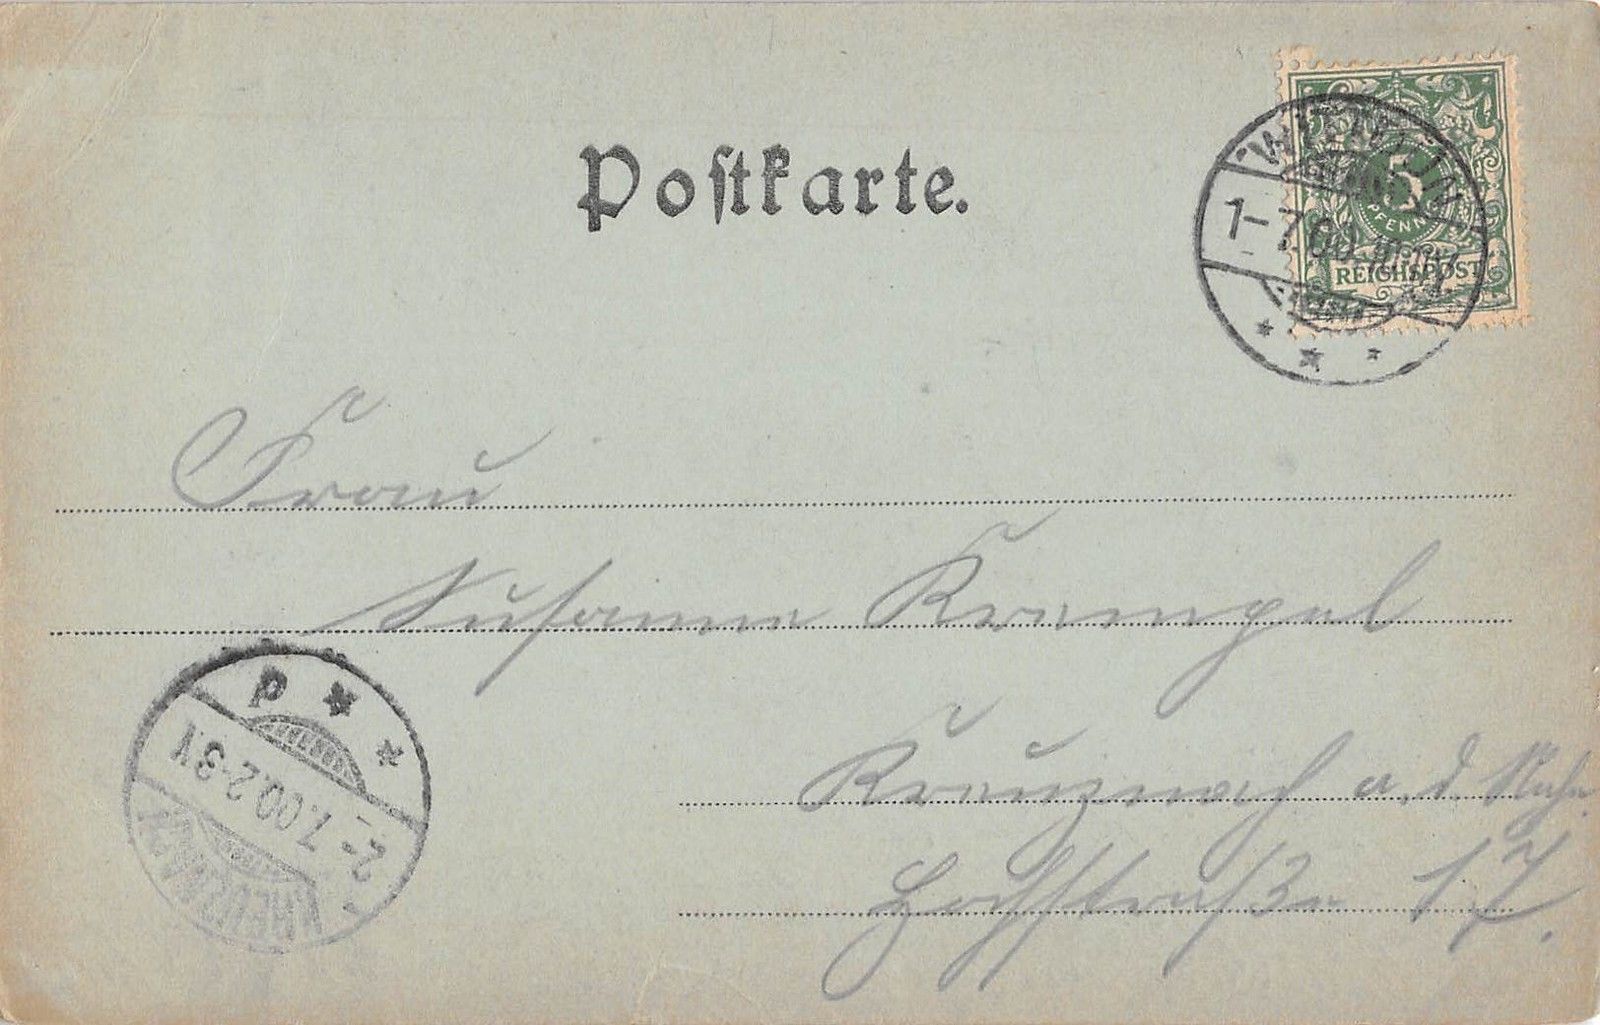 Postkarte.
5
PFENNIG
REICHSPOST
1-7.00.
Frau
Susanna Krempel
Kreuznach a. d. Nahe
Hochstraße 17.
P
2-7.00.2-3.V
KREUZNACH